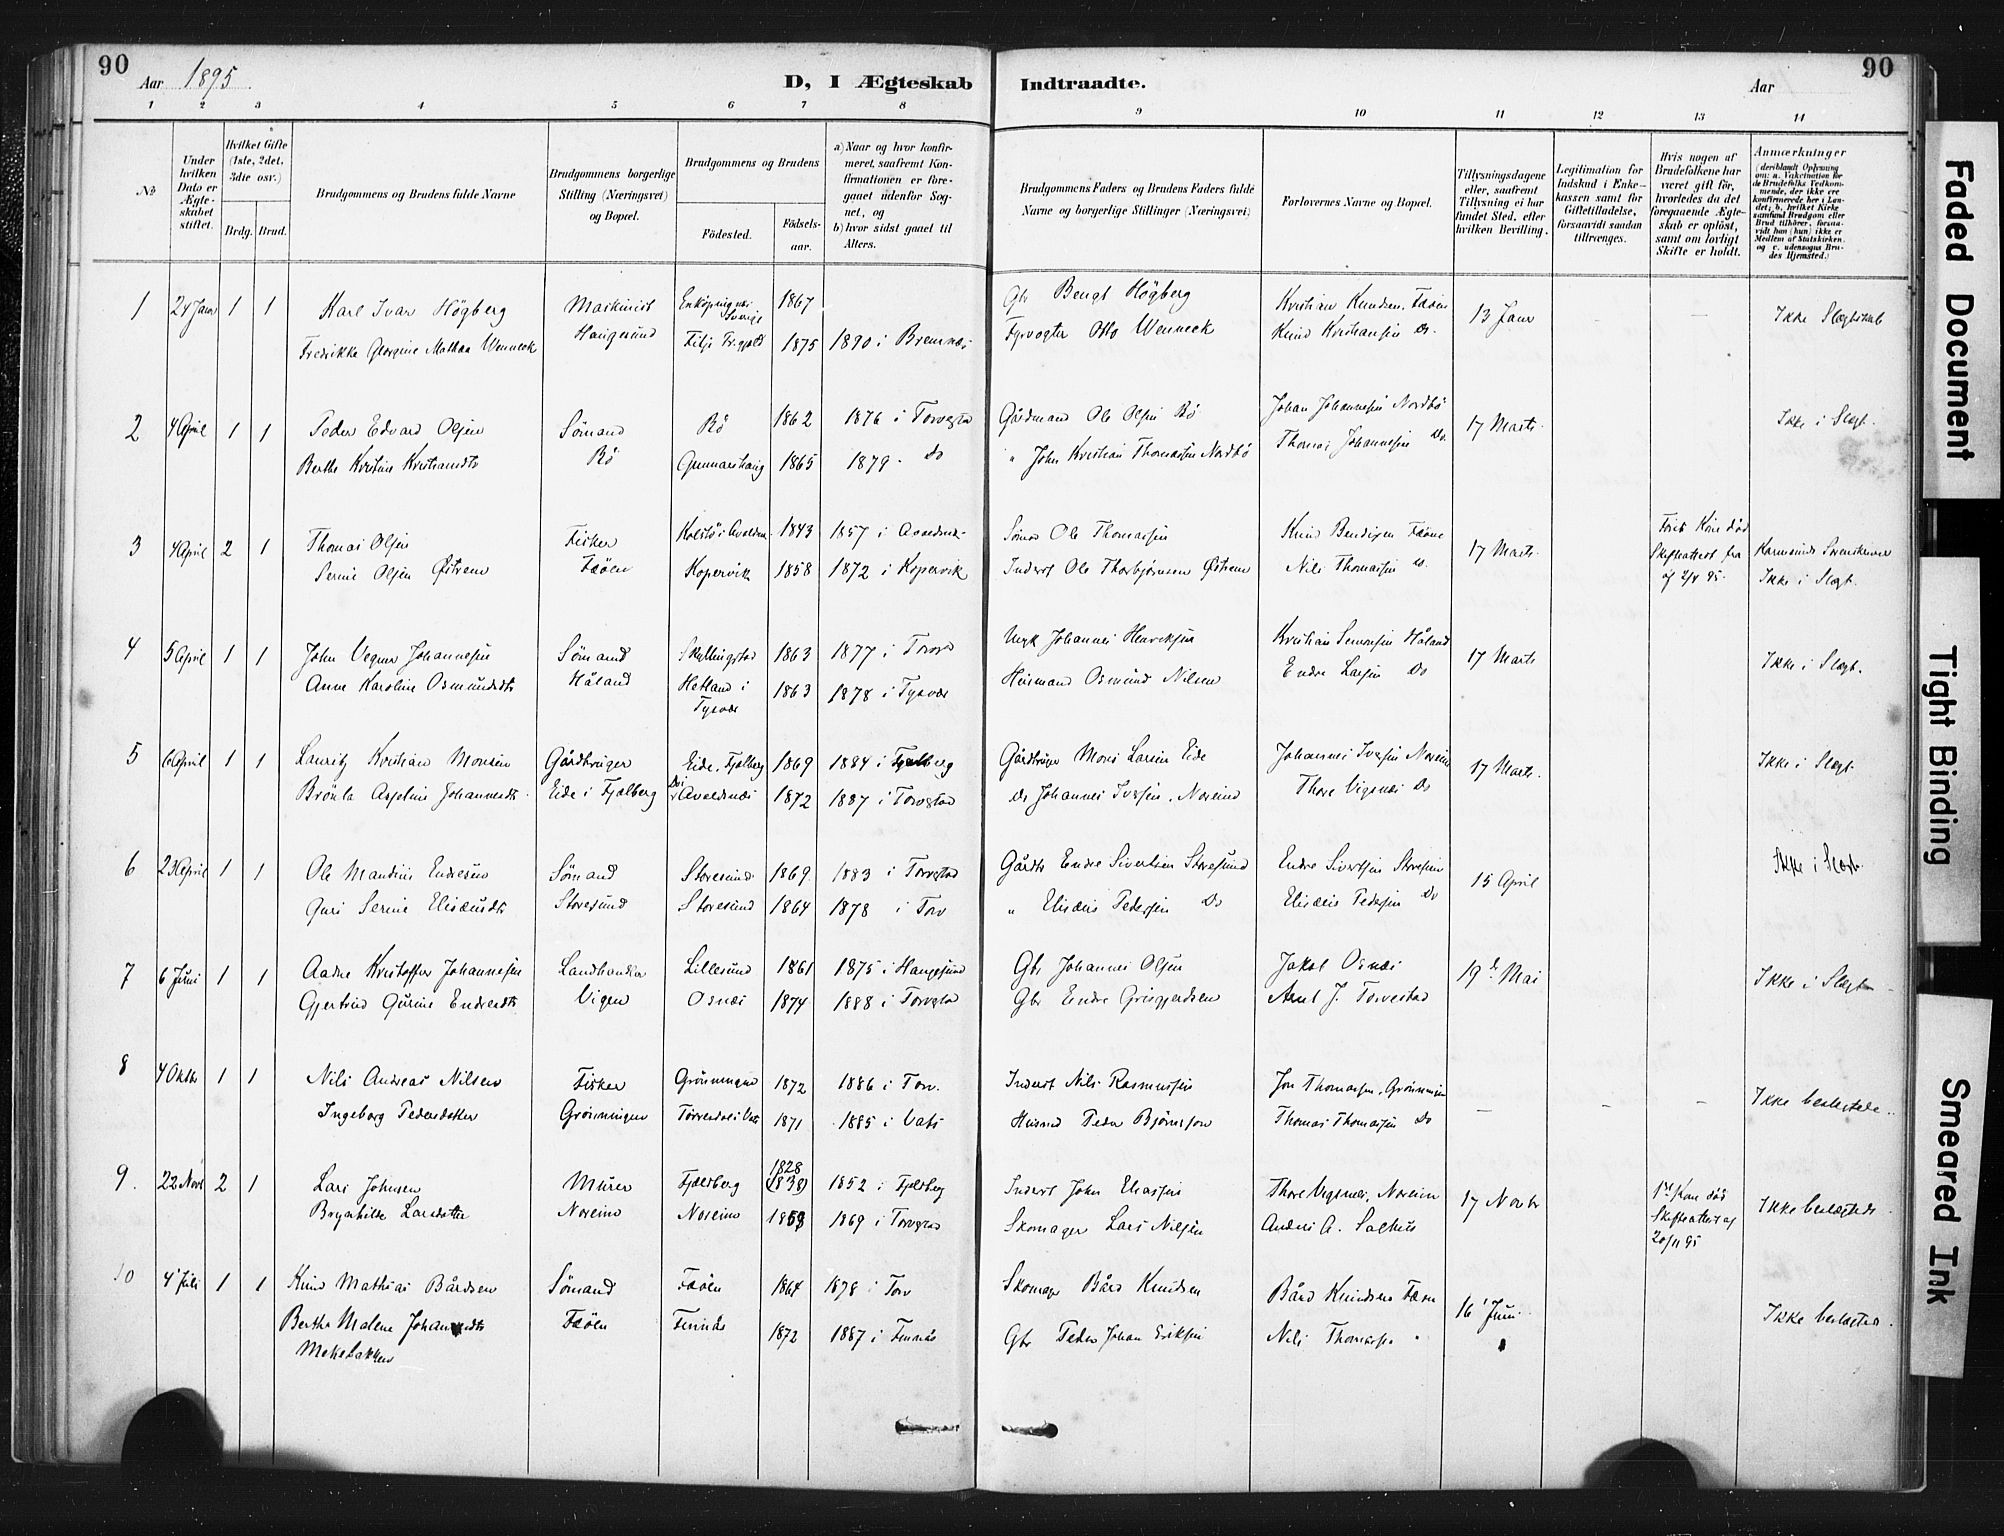 90
Aar 1895
D, I Ægteskab
Indtraadte.
Aar
90
1 2 3 4 5 6 7 8 9 10 11 12 13 14
No
Under hvilken Dato er Ægteskabet stiftet.
Hvilket Gifte (1ste, 2det, 3die osv.)
Brdg. Brud.
Brudgommens og Brudens fulde Navne
Brudgommens borgerlige Stilling (Næringsvei) og Bopæl.
Brudgommens og Brudens
Fødested.
Fødsels-aar.
a) Naar og hvor konfir-meret, saafremt Kon-firmationen er fore-gaaet udenfor Sog-net, og
b) hvor sidst gaaet til Alters.
Brudgommens Faders og Brudens Faders fulde Navne og borgerlige Stillinger (Næringsvei)
Forlovernes Navne og Bopæl.
Tillysningsdagene eller, saafremt Tillysning ei har fundet Sted, efter hvilken Bevilling.
Legitimation for Indskud i Enke-kassen samt for Giftetilladelse, forsaavidt saadan tiltrænges.
Hvis nogen af Brudefolkene har været gift før, hvorledes da det foregaaende Ægte-skab er opløst, samt om lovligt Skifte er holdt.
Anmærkninger
1 24 Janr 1 1 Karl Ivar Högberg Maskinist Enköping Sverige 1867 Gbr Bengt Högberg Kristian Knudsen, Fæøen 13 Janr - - Ikke Slægtskab
Fredrikke Georgine Mathea Wenneck Haugesund 1875 1890 i Bremnæs Fyrvogter Otto Wenneck Knud Kristiansen Do.
2 4 April 1 1 Peder Edvard Olsen Sömand Rö 1862 1876 i Torvestad Gårdmand Ole Olsen Rö Johan Johannesen Nordbö 17 Marts Ikke i Slægt.
Berthe Kristine Kristiandtr Rö Gunnarshaug 1865 1879 - Do " John Kristian Thomassen Nordbö Thomas Johannesen Do.
3 4 April 2 1 Thomas Olsen Fisker Kolstö i Avaldsn. 1843 1857 i Avaldsnæs Sömd Ole Thomassen Knud Bendixen Fæøen 17 Marts Forrige Kone död Skifteattest fra
Serine Olsen Østrem Fæøen Kopervik 1858 1872 i Kopervik Inderst Ole Thorbjørnsen Østrem Nils Thomassen Do. af 2/4 95. Ikke i Slægt.
4 5 April 1 1 John Johannesen Sömand Skyllingstad 1863 1877 i Torvd Johannes Henriksen Kristian Simonsen Håland 17 Marts Ikke i Slægt.
Anne Karoline Osmundsdtr Håland Hetland i Tysvær 1863 1878 i Tysvær Husmand Osmund Nilsen Endre Larsen Do
5 6 April 1 1 Lauritz Kristian Monsen Gårdbruger Eide, Fjelberg 1869 1884 i Fjelberg Gårdbruger Mons Larsen Eide Johannes Iversen Noreim 17 Marts. Ikke i Slægt.
Brönla Aspeline Johannesdtr. Eide i Fjælberg Avaldsnæs 1872 1887 i Torvestad Do Johannes Iversen, Noreim Thore Vignæs Do
6 23 April 1 1 Ole Mandius Endresen Sömand Storesund 1869 1883 i Torvestad Gårdb Endre Sivertsen Storesund Endre Sivertsen Storesun 15 April Ikke i Slægt.
Guri Serine Elisæusdtr Storesund Storesund 1864 1878 i Torv " Elisæus Pedersen Do Elisæus Pedersen Do
7 6 Juni 1 1 Aadne Kristoffer Johannesen Landhandler Lillesund 1861 1875 i Haugesund Gbr Johannes Olsen Jakob Osnæs 19de Mai Ikke i Slægt
Gjertrud Gurine Endresdtr Vigen Osnæs 1874 1888 i Torvestad Gbr Endre Gresgjerdsen Arnt J. Torvestad
8 4 Oktbr 1 1 Nils Andreas Nilsen Fisker Grönningen 1872 1886 i Torv. Inderst Nils Rasmussen Jon Thomassen, Grönningen - - - Ikke beslægtede.
Ingeborg Pedersdatter Grönningen Torvendnes i Vats 1871 1885 i Vats Husmd Peder Bjørnson Thomas Thomassen Do
9. 22 Novb 2 1 Lars Johnsen Murer Fjælberg 1828 (1838) 1852 i Fjelberg Inderst John Eliassen Thore Vignæs, Noreim 17 Novbr 1ste Kone död Ikke beslægtede.
Brynhilde Larsdatter Noreim Noreim 1853 1869 i Torvestad Skomager Lars Nilsen Anders A. Salhus Skifteattest af 20/11 95
10 4 Juli 1 1 Knud Mathias Bårdsen Sömand Fæøen 1864 1878 i Torv Skomager Bård Knudsen Bård Knudsen Fæøen 16 Juni Ikke beslægted.
Berthe Malene Johannesdtr Fæøen Finnås 1872 1887 i Finnås Gbr Peder Johan Eriksen Nils Thomassen "
Mekebakken
Faded Document
Tight Binding
Smeared Ink